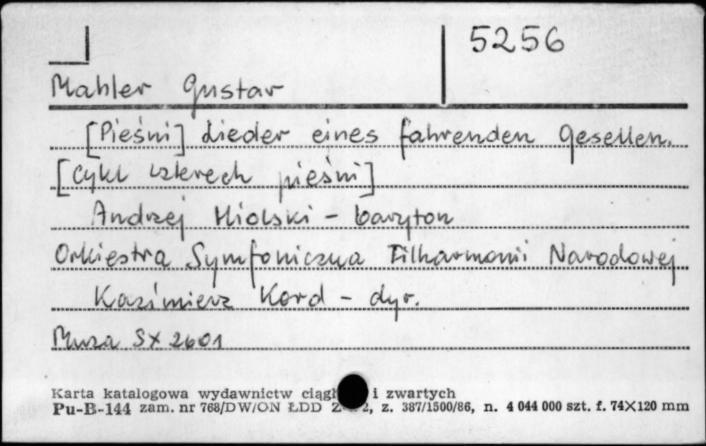 5256
Mahler Gustav
[Pieśni] Lieder eines fahrenden Gesellen.
[cykl czterech pieśni]
Andrzej Hiolski - baryton
Orkiestra Symfoniczna Filharmonii Narodowej
Kazimierz Kord - dyr.
Muza SX 2601
Karta katalogowa wydawnictw i zwartych
Pu-B-144 zam. nr 768/DW/ON ŁDD z. 387/1500/86, n. 4 044 000 szt. f. 74X120 mm